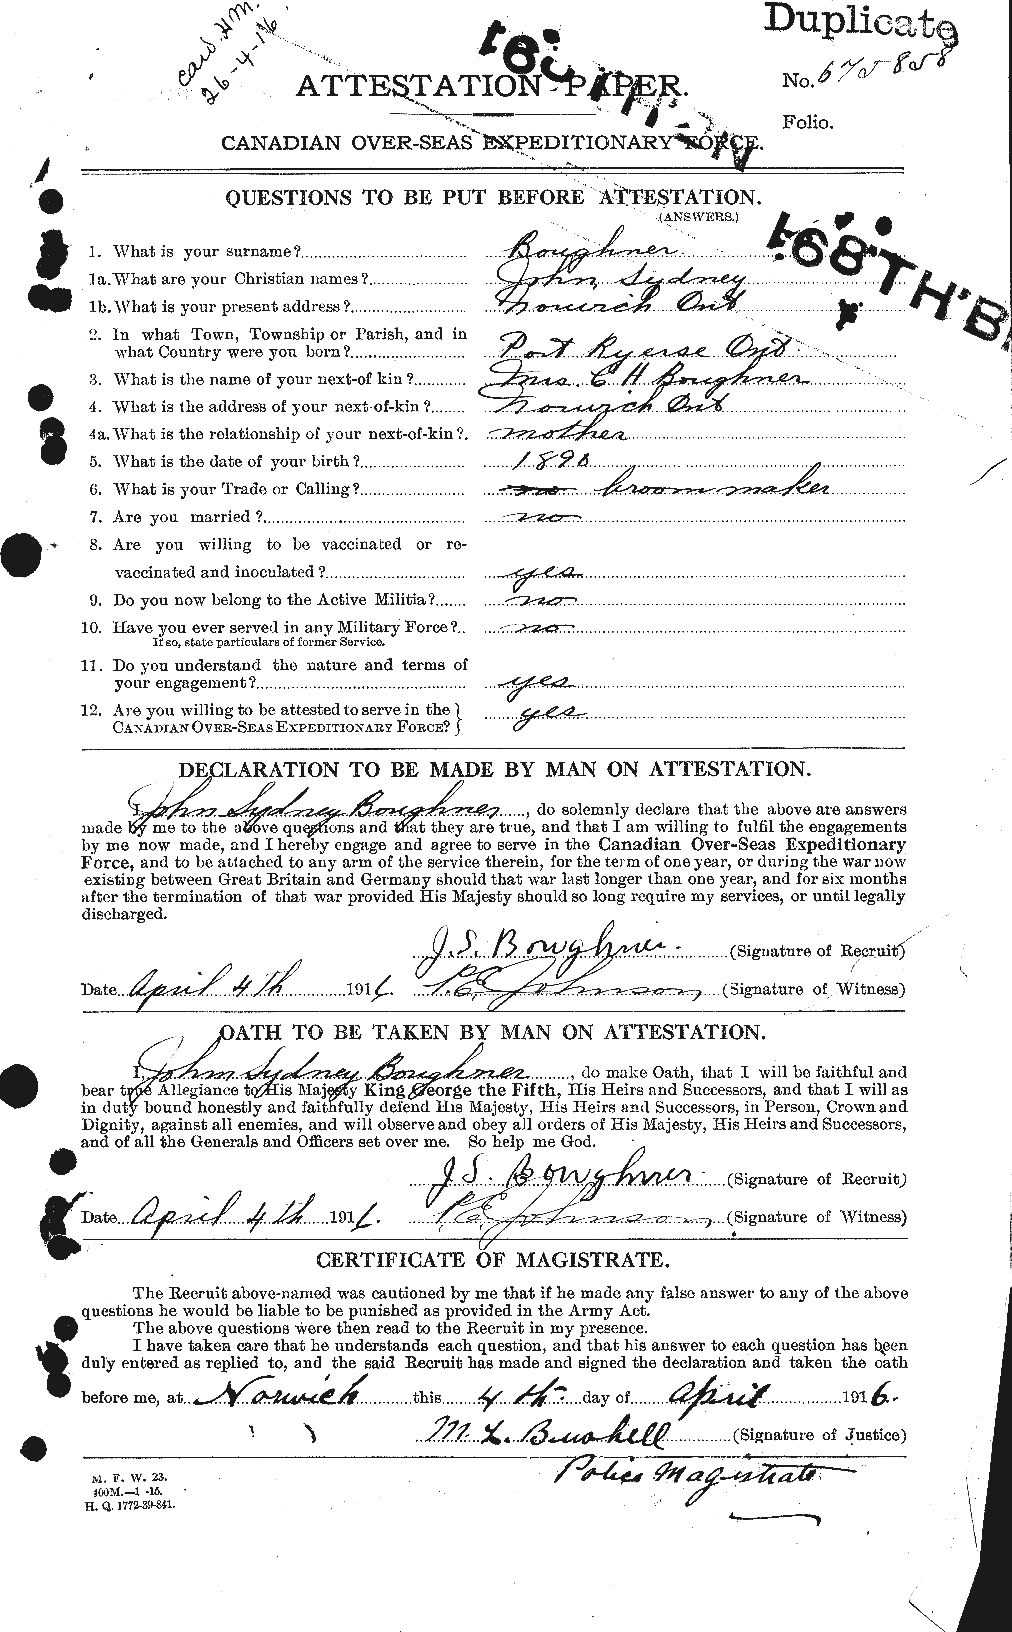 Duplicate
card. H.M.
26-4-16
No. 675858
Folio.
ATTESTATION PAPER.
CANADIAN OVER-SEAS EXPEDITIONARY FORCE.
QUESTIONS TO BE PUT BEFORE ATTESTATION.
(ANSWERS.)
168TH
1. What is your surname? Boughner
1a. What are your Christian names? John Sydney
1b. What is your present address? Norwich Ont
2. In what Town, Township or Parish, and in
what Country were you born? Port Ryerse Ont
3. What is the name of your next-of kin? Mrs. C H Boughner
4. What is the address of your next-of-kin? Norwich Ont
4a. What is the relationship of your next-of-kin? mother
5. What is the date of your birth?
6. What is your Trade or Calling? no broom maker
7. Are you married? no
8. Are you willing to be vaccinated or re-
vaccinated and inoculated? yes
9. Do you now belong to the Active Militia? no
10. Have you ever served in any Military Force? no
If so, state particulars of former Service.
11. Do you understand the nature and terms of
your engagement? yes
12. Are you willing to be attested to serve in the
CANADIAN OVER-SEAS EXPEDITIONARY FORCE? } yes
DECLARATION TO BE MADE BY MAN ON ATTESTATION.
I, John Sydney Boughner, do solemnly declare that the above are answers
made by me to the above questions and that they are true, and that I am willing to fulfil the engagements
by me now made, and I hereby engage and agree to serve in the Canadian Over-Seas Expeditionary
Force, and to be attached to any arm of the service therein, for the term of one year, or during the war now
existing between Great Britain and Germany should that war last longer than one year, and for six months
after the termination of that war provided His Majesty should so long require my services, or until legally
discharged.
J. S. Boughner. (Signature of Recruit)
Date April 4th 1916. P.E. Johnson (Signature of Witness)
OATH TO BE TAKEN BY MAN ON ATTESTATION.
I, John Sydney Boughner, do make Oath, that I will be faithful and
bear true Allegiance to His Majesty King George the Fifth, His Heirs and Successors, and that I will as
in duty bound honestly and faithfully defend His Majesty, His Heirs and Successors, in Person, Crown and
Dignity, against all enemies, and will observe and obey all orders of His Majesty, His Heirs and Successors,
and of all the Generals and Officers set over me. So help me God.
J S. Boughner (Signature of Recruit)
Date April 4th 1916. P.E. Johnson (Signature of Witness)
CERTIFICATE OF MAGISTRATE.
The Recruit above-named was cautioned by me that if he made any false answer to any of the above
questions he would be liable to be punished as provided in the Army Act.
The above questions were then read to the Recruit in my presence.
I have taken care that he understands each question, and that his answer to each question has been
duly entered as replied to, and the said Recruit has made and signed the declaration and taken the oath
before me, at Norwich this 4th day of April 1916.
M. L. (Signature of Justice)
Police Magistrate
M. F. W. 23.
400M.—1 -15.
H. Q. 1772-39-841.